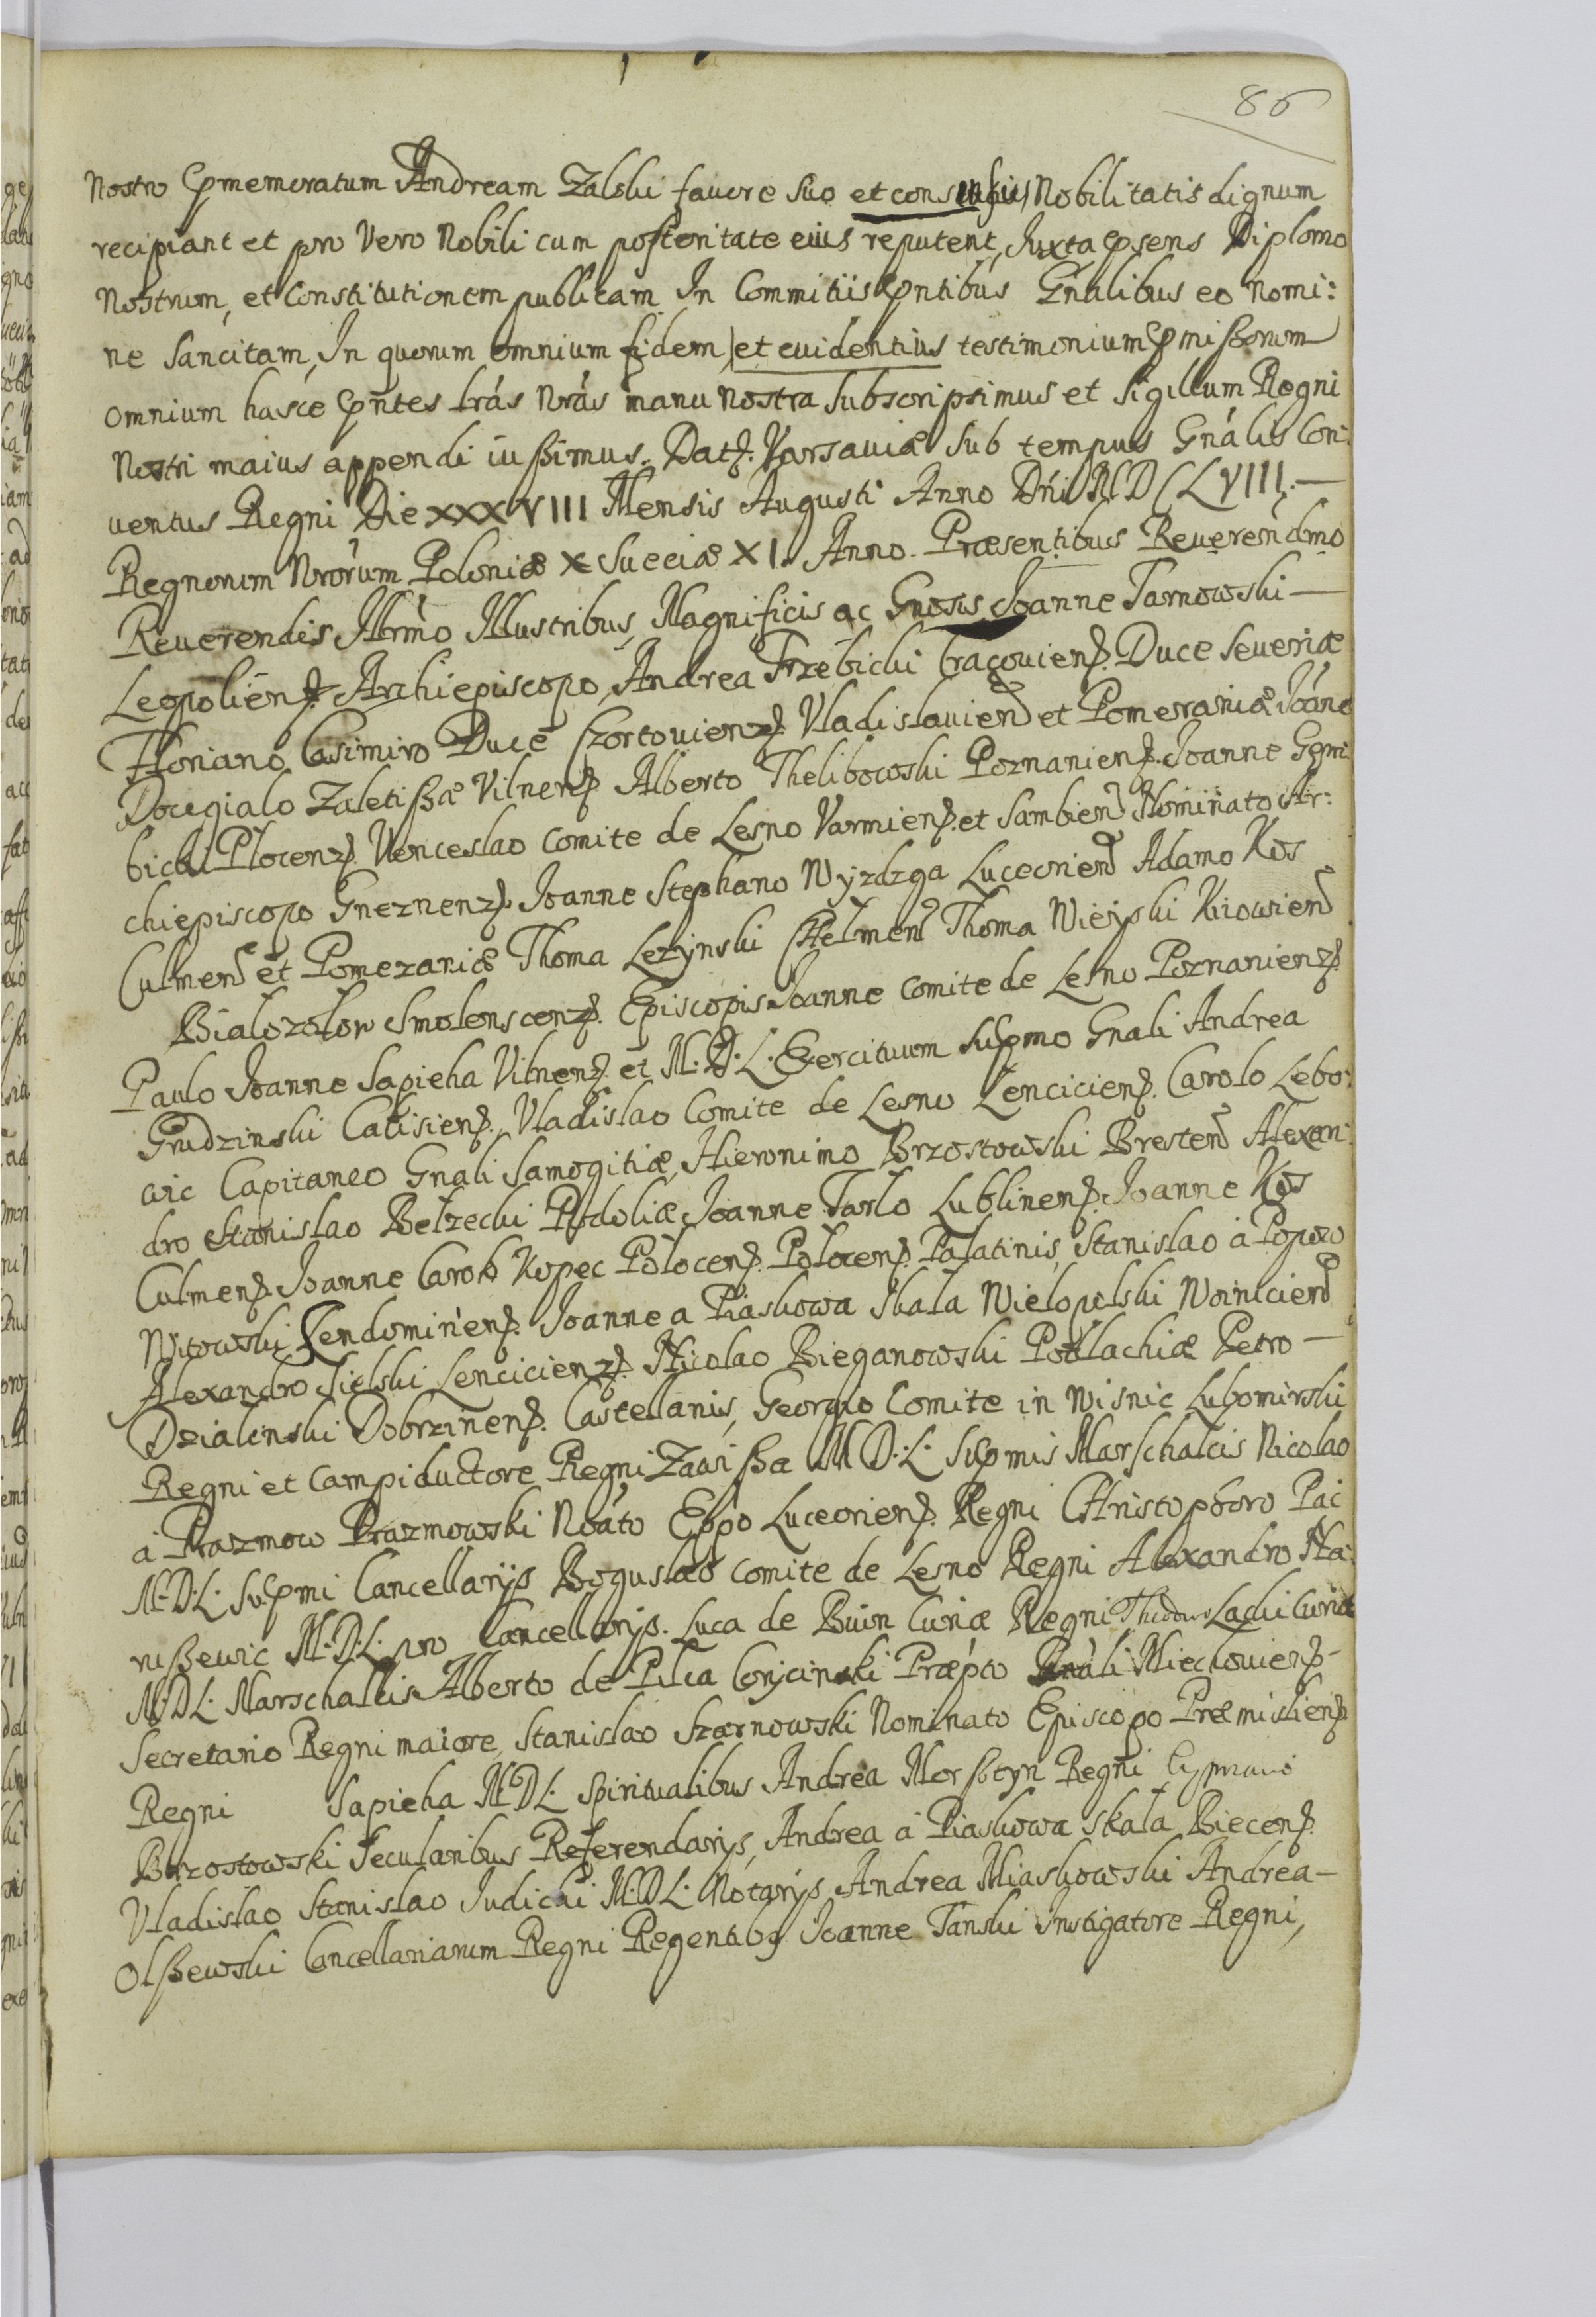 86
Nostro p̄memoratum Andream Zalski fauore suo et consensu Nobilitatis dignum
recipiant et pro Vero Nobili cum posteritate eius reputent, Juxta p̄sens Diploma
Nostrum, et Constitutionem publicam In Commitiis p̄ntibus Gńalibus eo nomi:
ne sancitam, In quorum omnium fidem, et euidentius testimonium p̄missorum
omnium hasce p̄ntes lrás Nrás manu Nostra subscripsimus et Sigillum Regni
Nostri maius appendi iußimus. Datt. Varsauiæ sub tempus Gnális Con:
uentus Regni Die XXXVIII Mensis Augusti Anno Dńi MDCLVIII.—
Regnorum Nrórum Poloniæ X Sueciæ XI. Anno. Præsentibus Reuerendmo
Reuerendis Illrmo Illustribus, Magnificis ac Gnosis Joanne Tarnowski—
Leopolien̄s Archiepiscopo, Andrea Trzebicki Cracouiens. Duce Seueriæ
Floriano Casimiro Duce Czortouiens. Vladislauien et Pomeraniæ Joáne
Dowgialo Zaleßæ Vilnens Alberto Thelibowski Poznaniens. Joanne Gęm:
bicki Plocens. Venceslao Comite de Lesno Varmiens. et Sambien Nominato Ar:
chiepiscopo Gneznens. Joanne Stephano Wyzdzga Luceorien Adamo Kos
Culmen et Pomezaniæ Thoma Lezynski Chelmen Thoma Wieyski Kiiowien
Bialozolor Smolenscens. Episcopis Joanne Comite de Lesno Poznaniens.
Paulo Joanne Sapieha Vilnens. et M.D.L. Exercituum Sup̄mo Gnali Andrea
Grudzinski Calisiens., Vladislao Comite de Lesno Lenciciens. Carolo Lebo:
wic Capitaneo Gnali Samogitiæ, Hieronimo Brzostowski Bresten Alexan:
dro Stanislao Belzecki Podoliæ Joanne Tarlo Lublinens. Joanne Kos
Culmens. Joanne Carolo Kopec Polocens. Polocens. Palatinis, Stanislao à Popowo
Witowski Sendomiriens. Joanne a Piaskowa Skala Wielopolski Woinicien
Alexandro Sielski Lenciciens. Nicolao Bieganowski Podlachiæ Petro—
Dzialinski Dobrzinens. Castellanis, Georgio Comite in Wisnic Lubomirski
Regni et Campiductore Regni Zawißa M D.L. Sup̄mis Marschalcis Nicolao
à Prazmow Prazmowski Noáto Ep̄po Luceoriens. Regni Christophoro Pac
M.D.L. Sup̄mi Cancellarijs Boguslao Comite de Lesno Regni Alexandro Na:
rußewic M.D.L. pro Cancellarijs. Luca de Buin Curiæ Regni Theodoro Lacki Curiæ
M.D.L. Marschalcis Alberto de Pilca Corycinski Præpto Gnáli Miechouiens-
Secretario Regni maiore, Stanislao Szarnowski Nominato Episcopo Præmisliens
Regni Sapieha MDL. Spiritualibus Andrea Morsztyn Regni Cypriano
Brzostowski Secularibus Referendarijs, Andrea à Piaskowa Skala Biecens.
Vladislao Stanislao Judicki M.D.L. Notarijs Andrea Miaskowski Andrea—
Olßewski Cancellariarum Regni Regentibs Joanne Tanski Instigatore Regni,